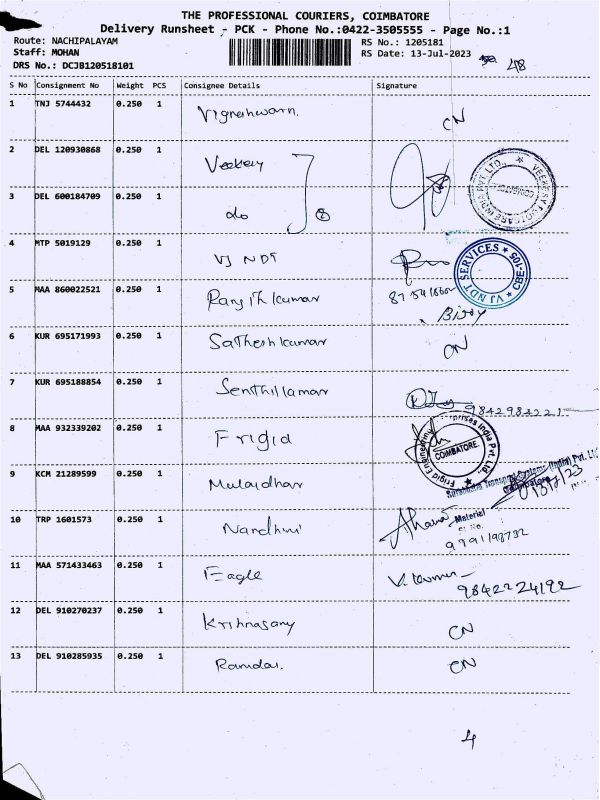 THE PROFESSIONAL COURIERS, COIMBATORE
Delivery Runsheet - PCK - Phone No.:0422-3505555 - Page No.:1
Route: NACHIPALAYAM
Staff: MOHAN
DRS No.: DCJB120518101
RS No.: 1205181
RS Date: 13-Jul-2023
S No Consignment No Weight PCS Consignee Details Signature
1 TNJ 5744432 0.250 1 Vigneshwarn. CN
2 DEL 120930868 0.250 1 Veekesy
3 DEL 600184709 0.250 1 do 2
VEEKESY FOOTCARE INDIA PVT LTD.,
4 MTP 5019129 0.250 1 VJ NDT
VJ NDT SERVICES CBE-105
5 MAA 860022521 0.250 1 Ranjith kumar
6 KUR 695171993 0.250 1 Sathesh kumar CN
7 KUR 695188854 0.250 1 Senthil
8 MAA 932339202 0.250 1 Frigid
Frigid Engineering Enterprises India Pvt. Ltd., COIMBATORE.
9 KCM 21289599 0.250 1 Mulaidhar
Transport Systems (India) Pvt. Ltd
10 TRP 1601573 0.250 1 Nandhni
Material
9791198732
11 MAA 571433463 0.250 1 Eagle
9842224192
12 DEL 910270237 0.250 1 Krishnasamy CN
13 DEL 910285935 0.250 1 Ramdas. CN
4